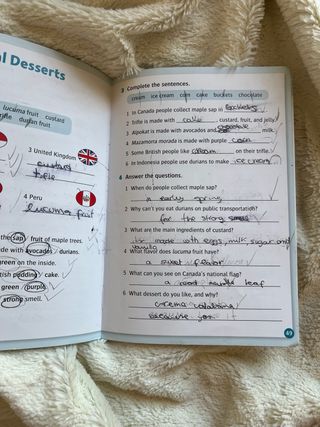 al Desserts
lucuma fruit custard
trifle durian fruit
3 United Kingdom
custard
trifle
4 Peru
lucuma fruit
the sap fruit of maple trees.
de with avocados durians.
green on the inside.
itish pudding cake.
green purple
strong smell.
3 Complete the sentences.
cream ice cream corn cake buckets chocolate
1 In Canada people collect maple sap in buckets.
2 Trifle is made with cake, custard, fruit, and jelly.
3 Alpokat is made with avocados and milk.
4 Mazamorra morada is made with purple corn.
5 Some British people like cream on their trifle.
6 In Indonesia people use durians to make ice cream.
4 Answer the questions.
1 When do people collect maple sap?
in early spring
2 Why can't you eat durians on public transportation?
for the strong smell
3 What are the main ingredients of custard?
is made with eggs, milk, sugar and
vanilla
4 What flavor does lucuma fruit have?
a sweet flavor
5 What can you see on Canada's national flag?
a leaf
6 What dessert do you like, and why?
crema
69